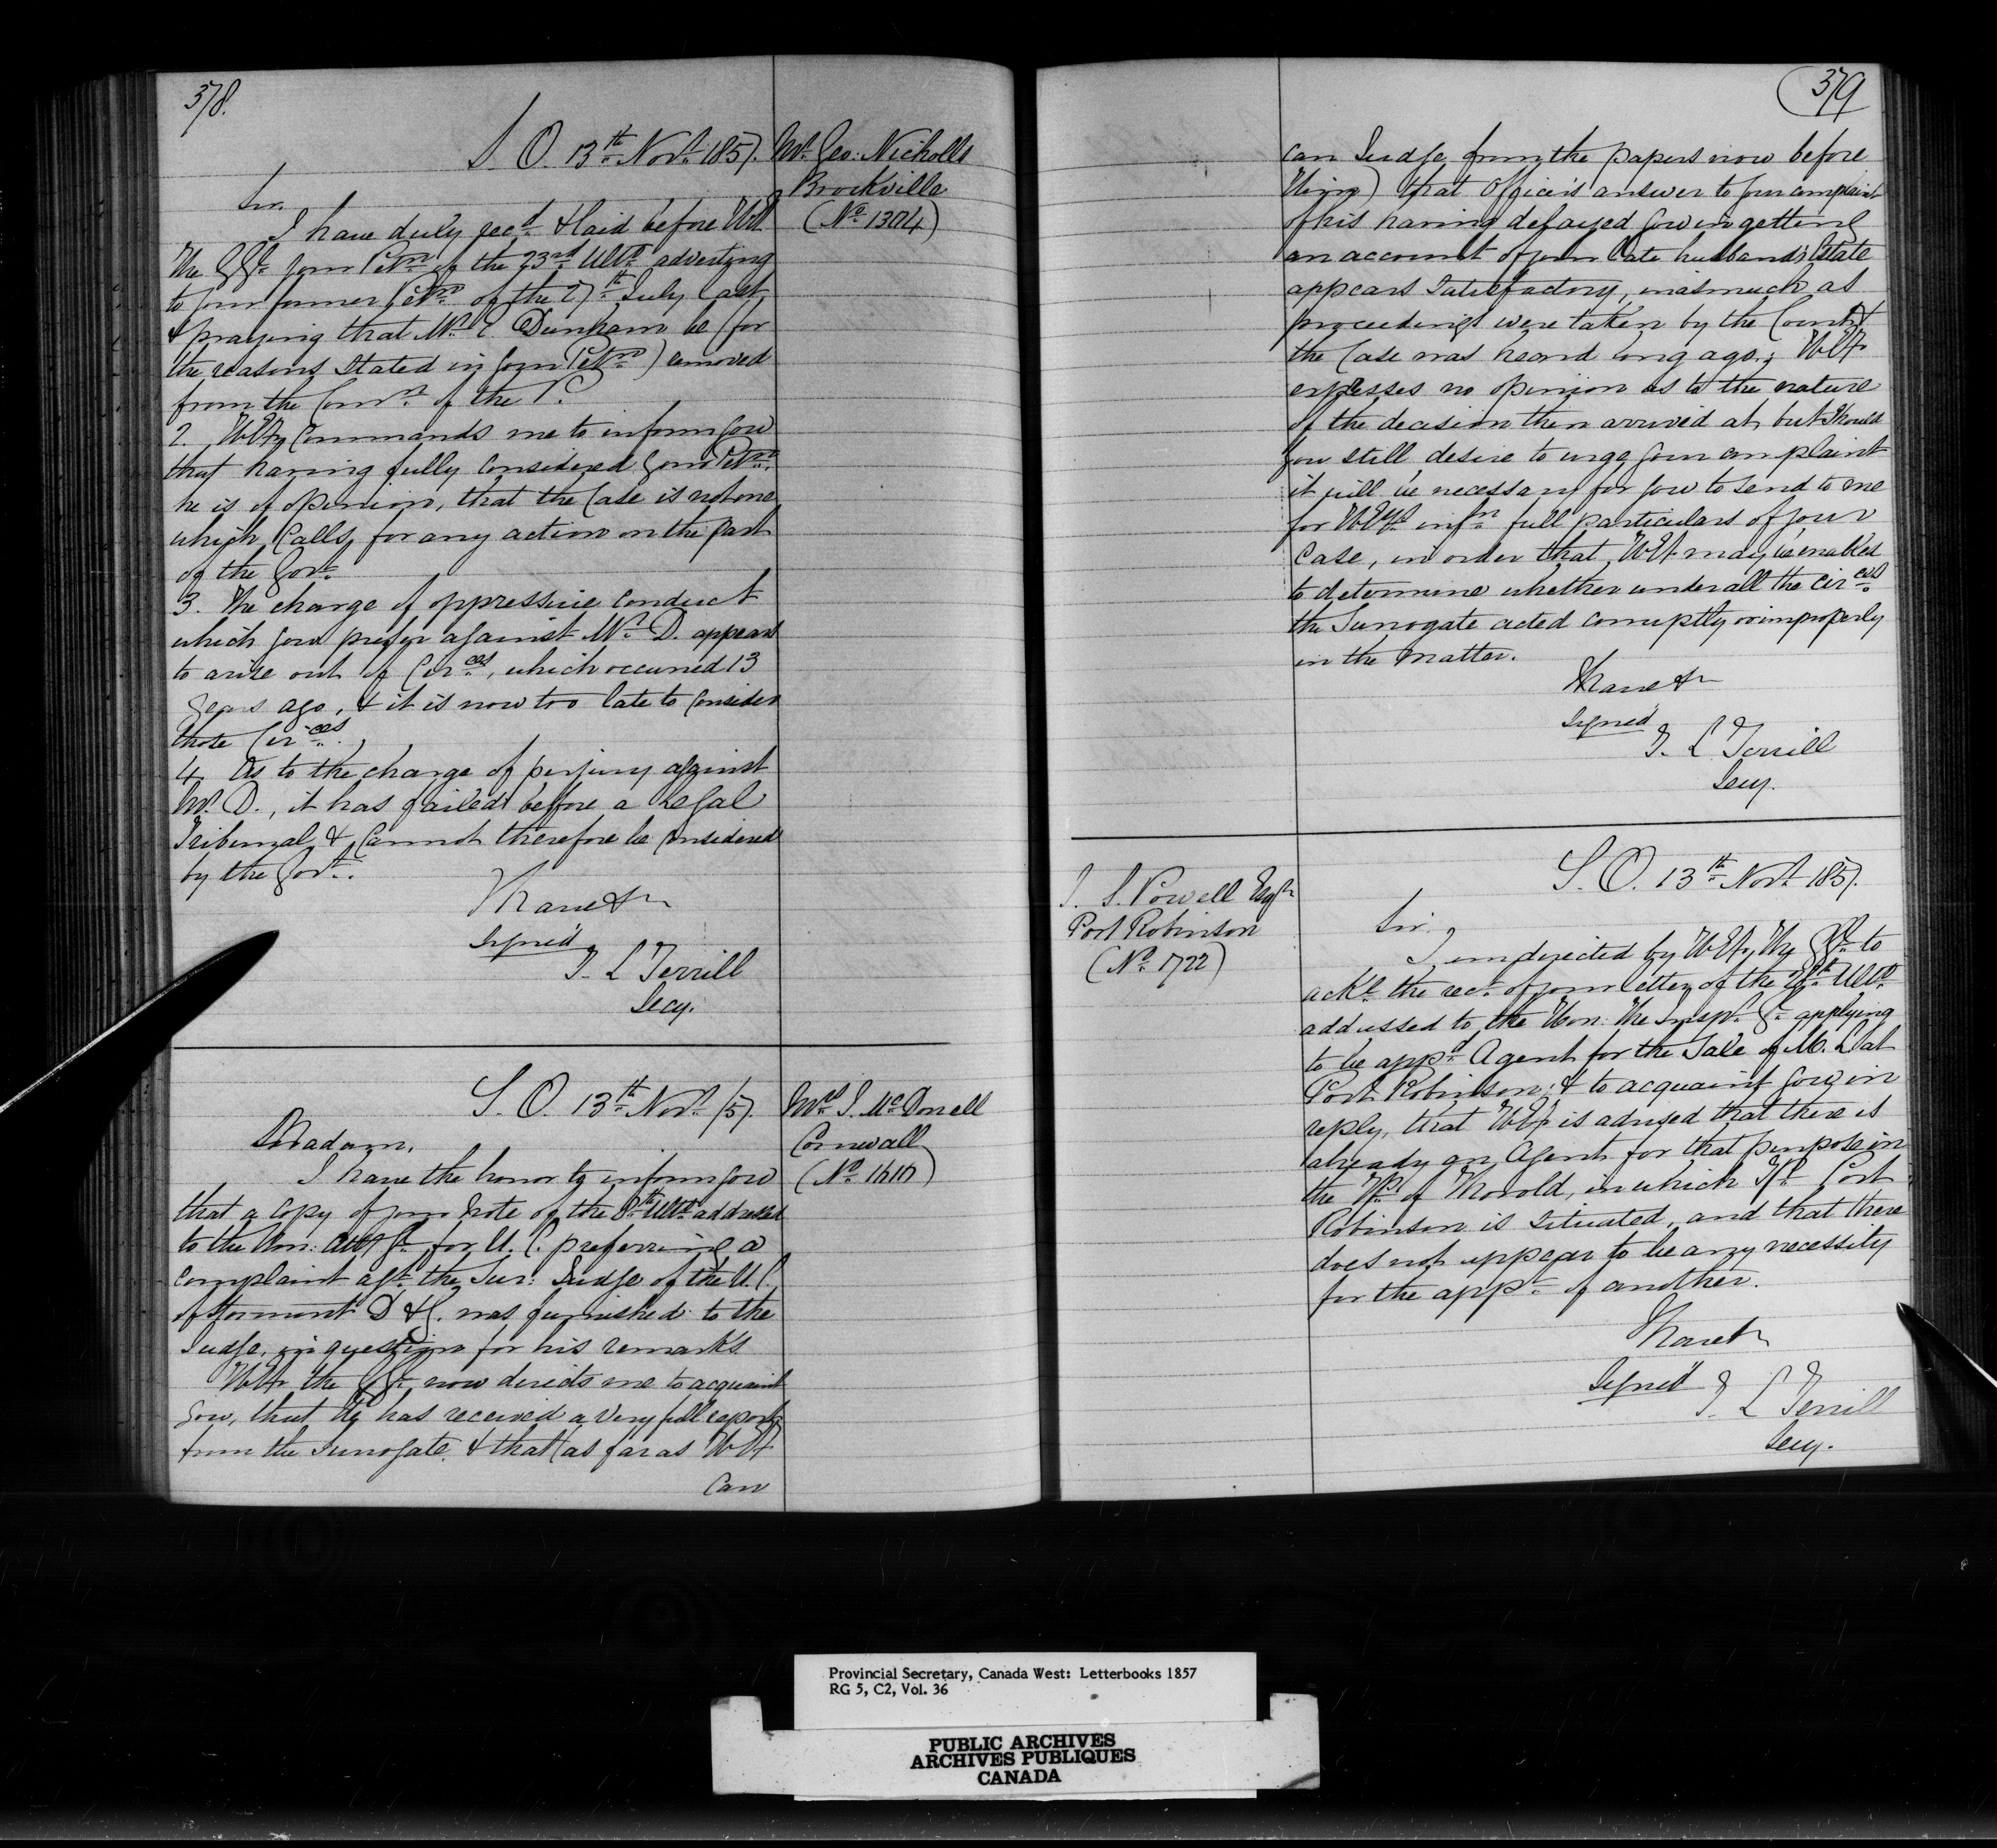 378.
S. O. 13th Novr 1857.
Mr. Geo: Nicholls
Brockville
(No. 1304)
Sir.
I have duly recd. & laid before HE
the GGl. your Petn. of the 23rd Ulto. adverting
to your former Petn. of the 27th July last,
& praying that Mr. E. Dunham be (for
the reasons stated in your Petn.) removed
from the Comn. of the P.
2. HEy Commands me to inform you
that having fully Considered your Petn.
he is of opinion, that the Case is not one
which Calls for any action on the part
of the Govt.
3. The charge of oppressive conduct
which you prefer against Mr. D. appears
to arise out of Circes, which occurred 13
years ago, & it is now too late to Consider
those Circes.
4. As to the charge of perjury against
Mr. D., it has failed before a Legal
Tribunal & Cannot therefore be Considered
by the Govt.
I have &c
Signed
T. L Terrill
Secy.
S. O. 13th Novr /57
Mrs. I. McDonell
Cornwall
(No. 1610)
Madam,
I have the honor to inform you
that a Copy of your Note of the 8th Ulto. addressed
to the Hon: Atty Gl. for U. C. preferring a
Complaint agt. the Sur: Judge of the U. C.
of Stormont D & G. was furnished to the
Judge, in question for his remarks
HEy the GGl. now directs me to acquaint
you, that He has received a very full report
from the Surrogate, & that (as far as HEy
Can
379
can Judge from the papers now before
Him) that Officer's answer to your complaint
of his having delayed you in getting
an account of your late husband's Estate
appears Satisfactory, inasmuch as
proceedings were taken by the Court &
the Case was heard long ago; HEy
expresses no opinion as to the nature
of the decision then arrived at, but Should
you still desire to urge your complaint
it will be necessary for you to Send to me
for HEys infn. full particulars of your
Case, in order that HEy may be enabled
to determine whether under all the circes
the Surrogate acted corruptly or improperly
in the Matter.
I have &c
Signed
T. L Terrill
Secy.
S. O. 13th Novr 1857.
I. S. Powell Esqr
Port Robinson
(No. 1722)
Sir.
I am directed by HEy, The GGl. to
ackl. the rect. of your letter of the Ulto.
addressed to the Hon: The Inspr. Gl. applying
to be appd. Agent for the Sale of M. L at
Port Robinson; & to acquaint you in
reply, that HEy is advised that there is
already an Agent for that purpose in
the Tp. of Thorold, in which Tp. Port
Robinson is Situated, and that there
does not appear to be any necessity
for the appt. of another.
I have &c
Signed
T. L Terrill
Secy.
Provincial Secretary, Canada West: Letterbooks 1857
RG 5, C2, Vol. 36
PUBLIC ARCHIVES
ARCHIVES PUBLIQUES
CANADA